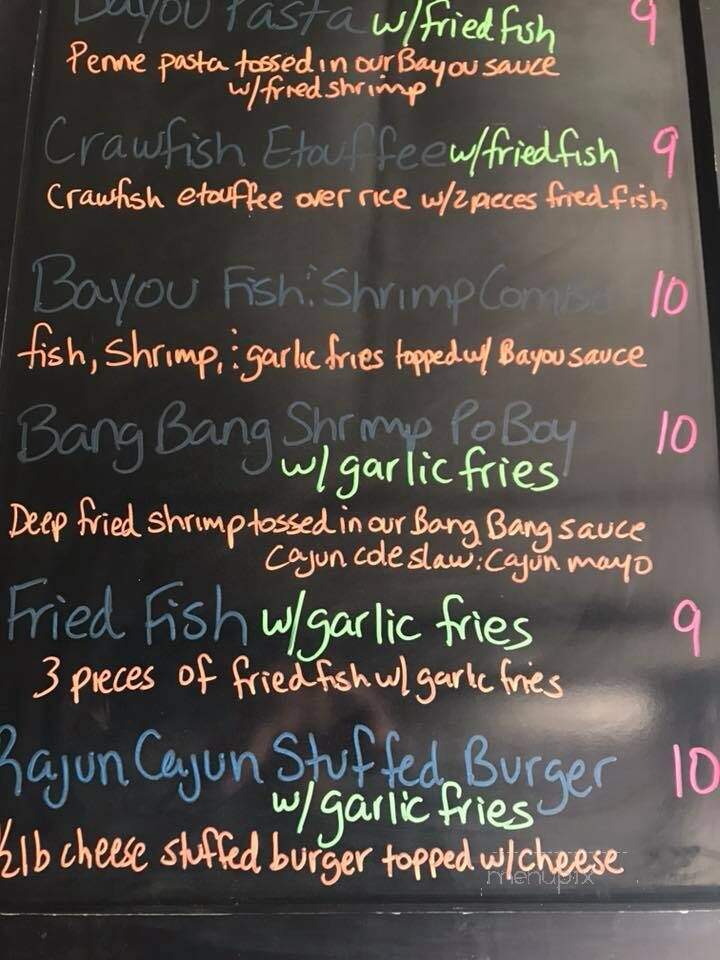 Bayou Pasta w/fried fish 9
Penne pasta tossed in our Bayou sauce
w/fried shrimp
Crawfish Etouffee w/fried fish 9
Crawfish etouffee over rice w/2 pieces fried fish
Bayou Fish : Shrimp Combo 10
fish, Shrimp, : garlic fries topped w/ Bayou sauce
Bang Bang Shrimp Po Boy 10
w/ garlic fries
Deep fried shrimp tossed in our Bang Bang sauce
Cajun cole slaw : Cajun mayo
Fried Fish w/garlic fries 9
3 pieces of fried fish w/ garlic fries
Rajun Cajun Stuffed Burger 10
w/garlic fries
1/2 lb cheese stuffed burger topped w/cheese
menupix